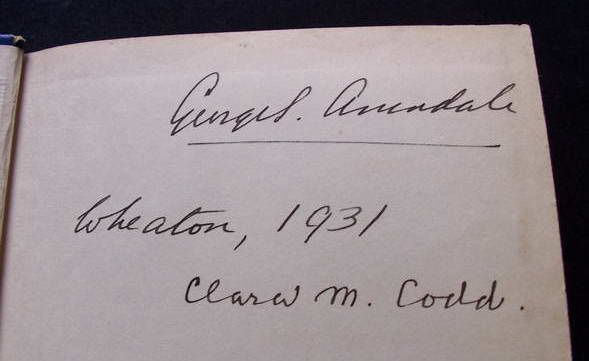 George S. Arundale
Wheaton, 1931
Clara M. Codd.